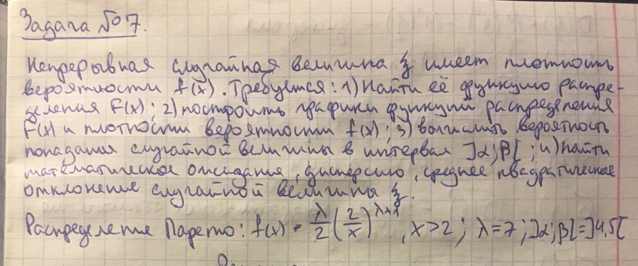 Задача №7.
Непрерывная случайная величина ξ имеет плотность
вероятности f(x). Требуется: 1) Найти её функцию распре-
деления F(x); 2) построить графики функций распределения
F(x) и плотности вероятности f(x); 3) вычислить вероятность
попадания случайной величины в интервал ]α;β[; 4) найти
математическое ожидание, дисперсию, среднее квадратическое
отклонение случайной величины ξ.
Распределение Парето: f(x) = λ/2 (2/x)^(λ+1), x>2; λ=7; ]α;β[=]4,5[